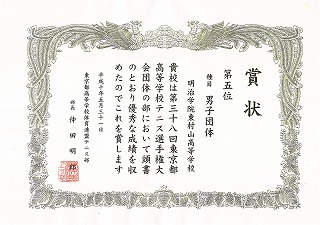 賞状
第五位
種目 男子団体
明治学院東村山高等学校
貴校は第三十八回東京都
高等学校テニス選手権大
会団体の部において頭書
のとおり優秀な成績を収
めたのでこれを賞します
平成十年五月三十一日
東京都高等学校体育連盟テニス部
部長 仲田明